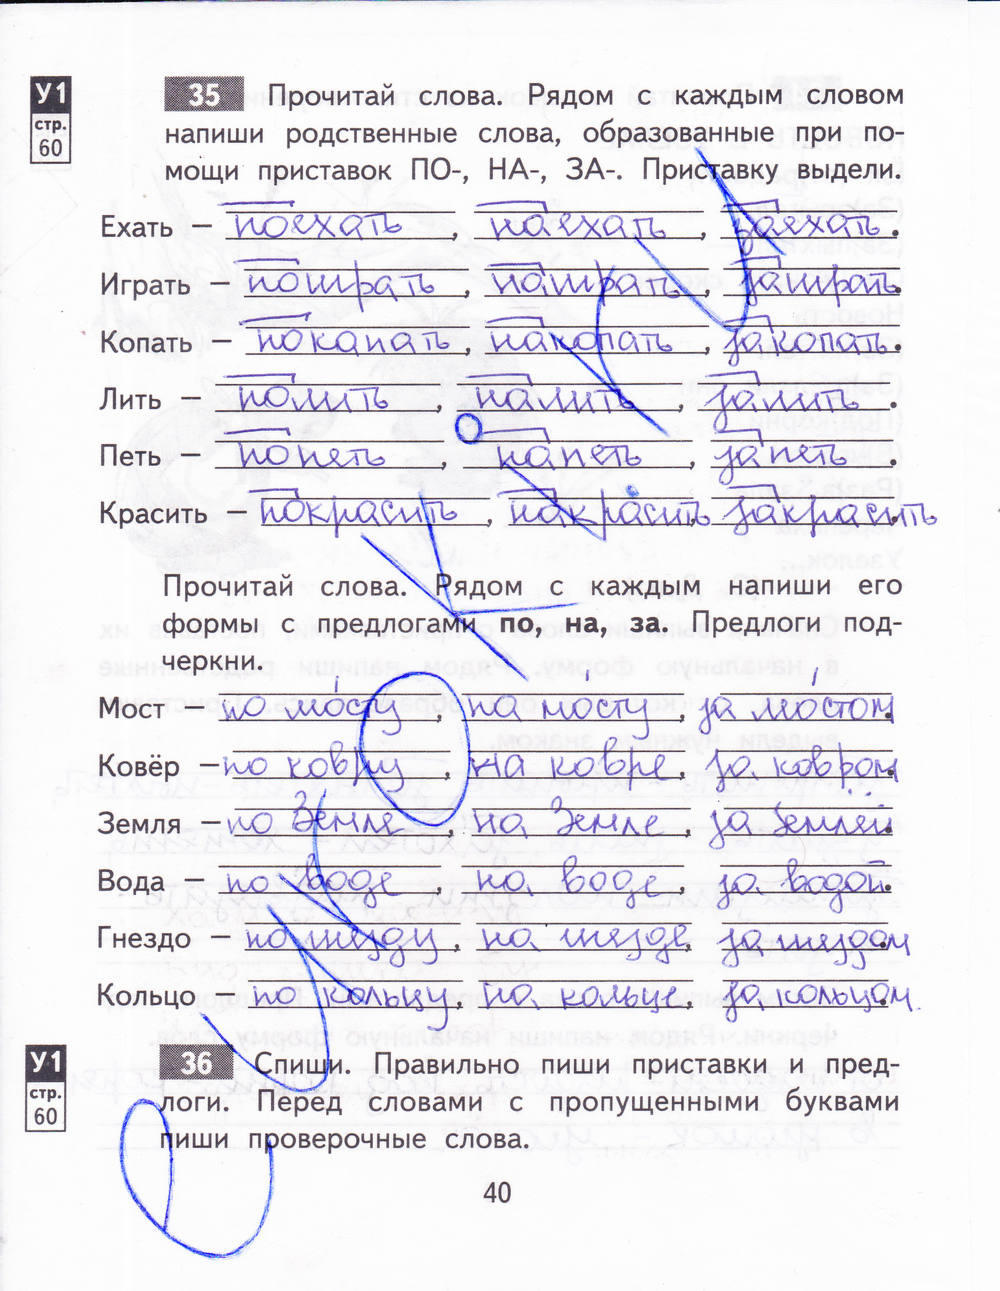 У1
стр.
60
35 Прочитай слова. Рядом с каждым словом
напиши родственные слова, образованные при по-
мощи приставок ПО-, НА-, ЗА-. Приставку выдели.
Ехать – поехать, наехать, заехать.
Играть – поиграть, наиграть, заиграть
Копать – покапать, накопать, закопать.
Лить – полить, налить, залить.
Петь – попеть, напеть, запеть.
Красить – покрасить, накрасить, закрасить
Прочитай слова. Рядом с каждым напиши его
формы с предлогами по, на, за. Предлоги под-
черкни.
Мост – по мосту, на мосту, за мостом.
Ковёр – по ковру, на ковре, за ковром
Земля – по Земле, на Земле, за землёй.
Вода – по воде, на воде, за водой.
Гнездо – по гнезду, на гнезде, за гнездом
Кольцо – по кольцу, на кольце, за кольцом.
У1
стр.
60
36 Спиши. Правильно пиши приставки и пред-
логи. Перед словами с пропущенными буквами
пиши проверочные слова.
40